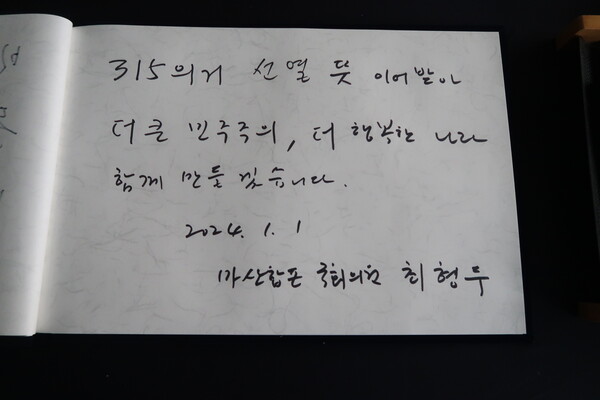 315의거 선열 뜻 이어받아
더 큰 민주주의, 더 행복한 나라
함께 만들겠습니다.
2024. 1. 1
마산합포 국회의원 최형두